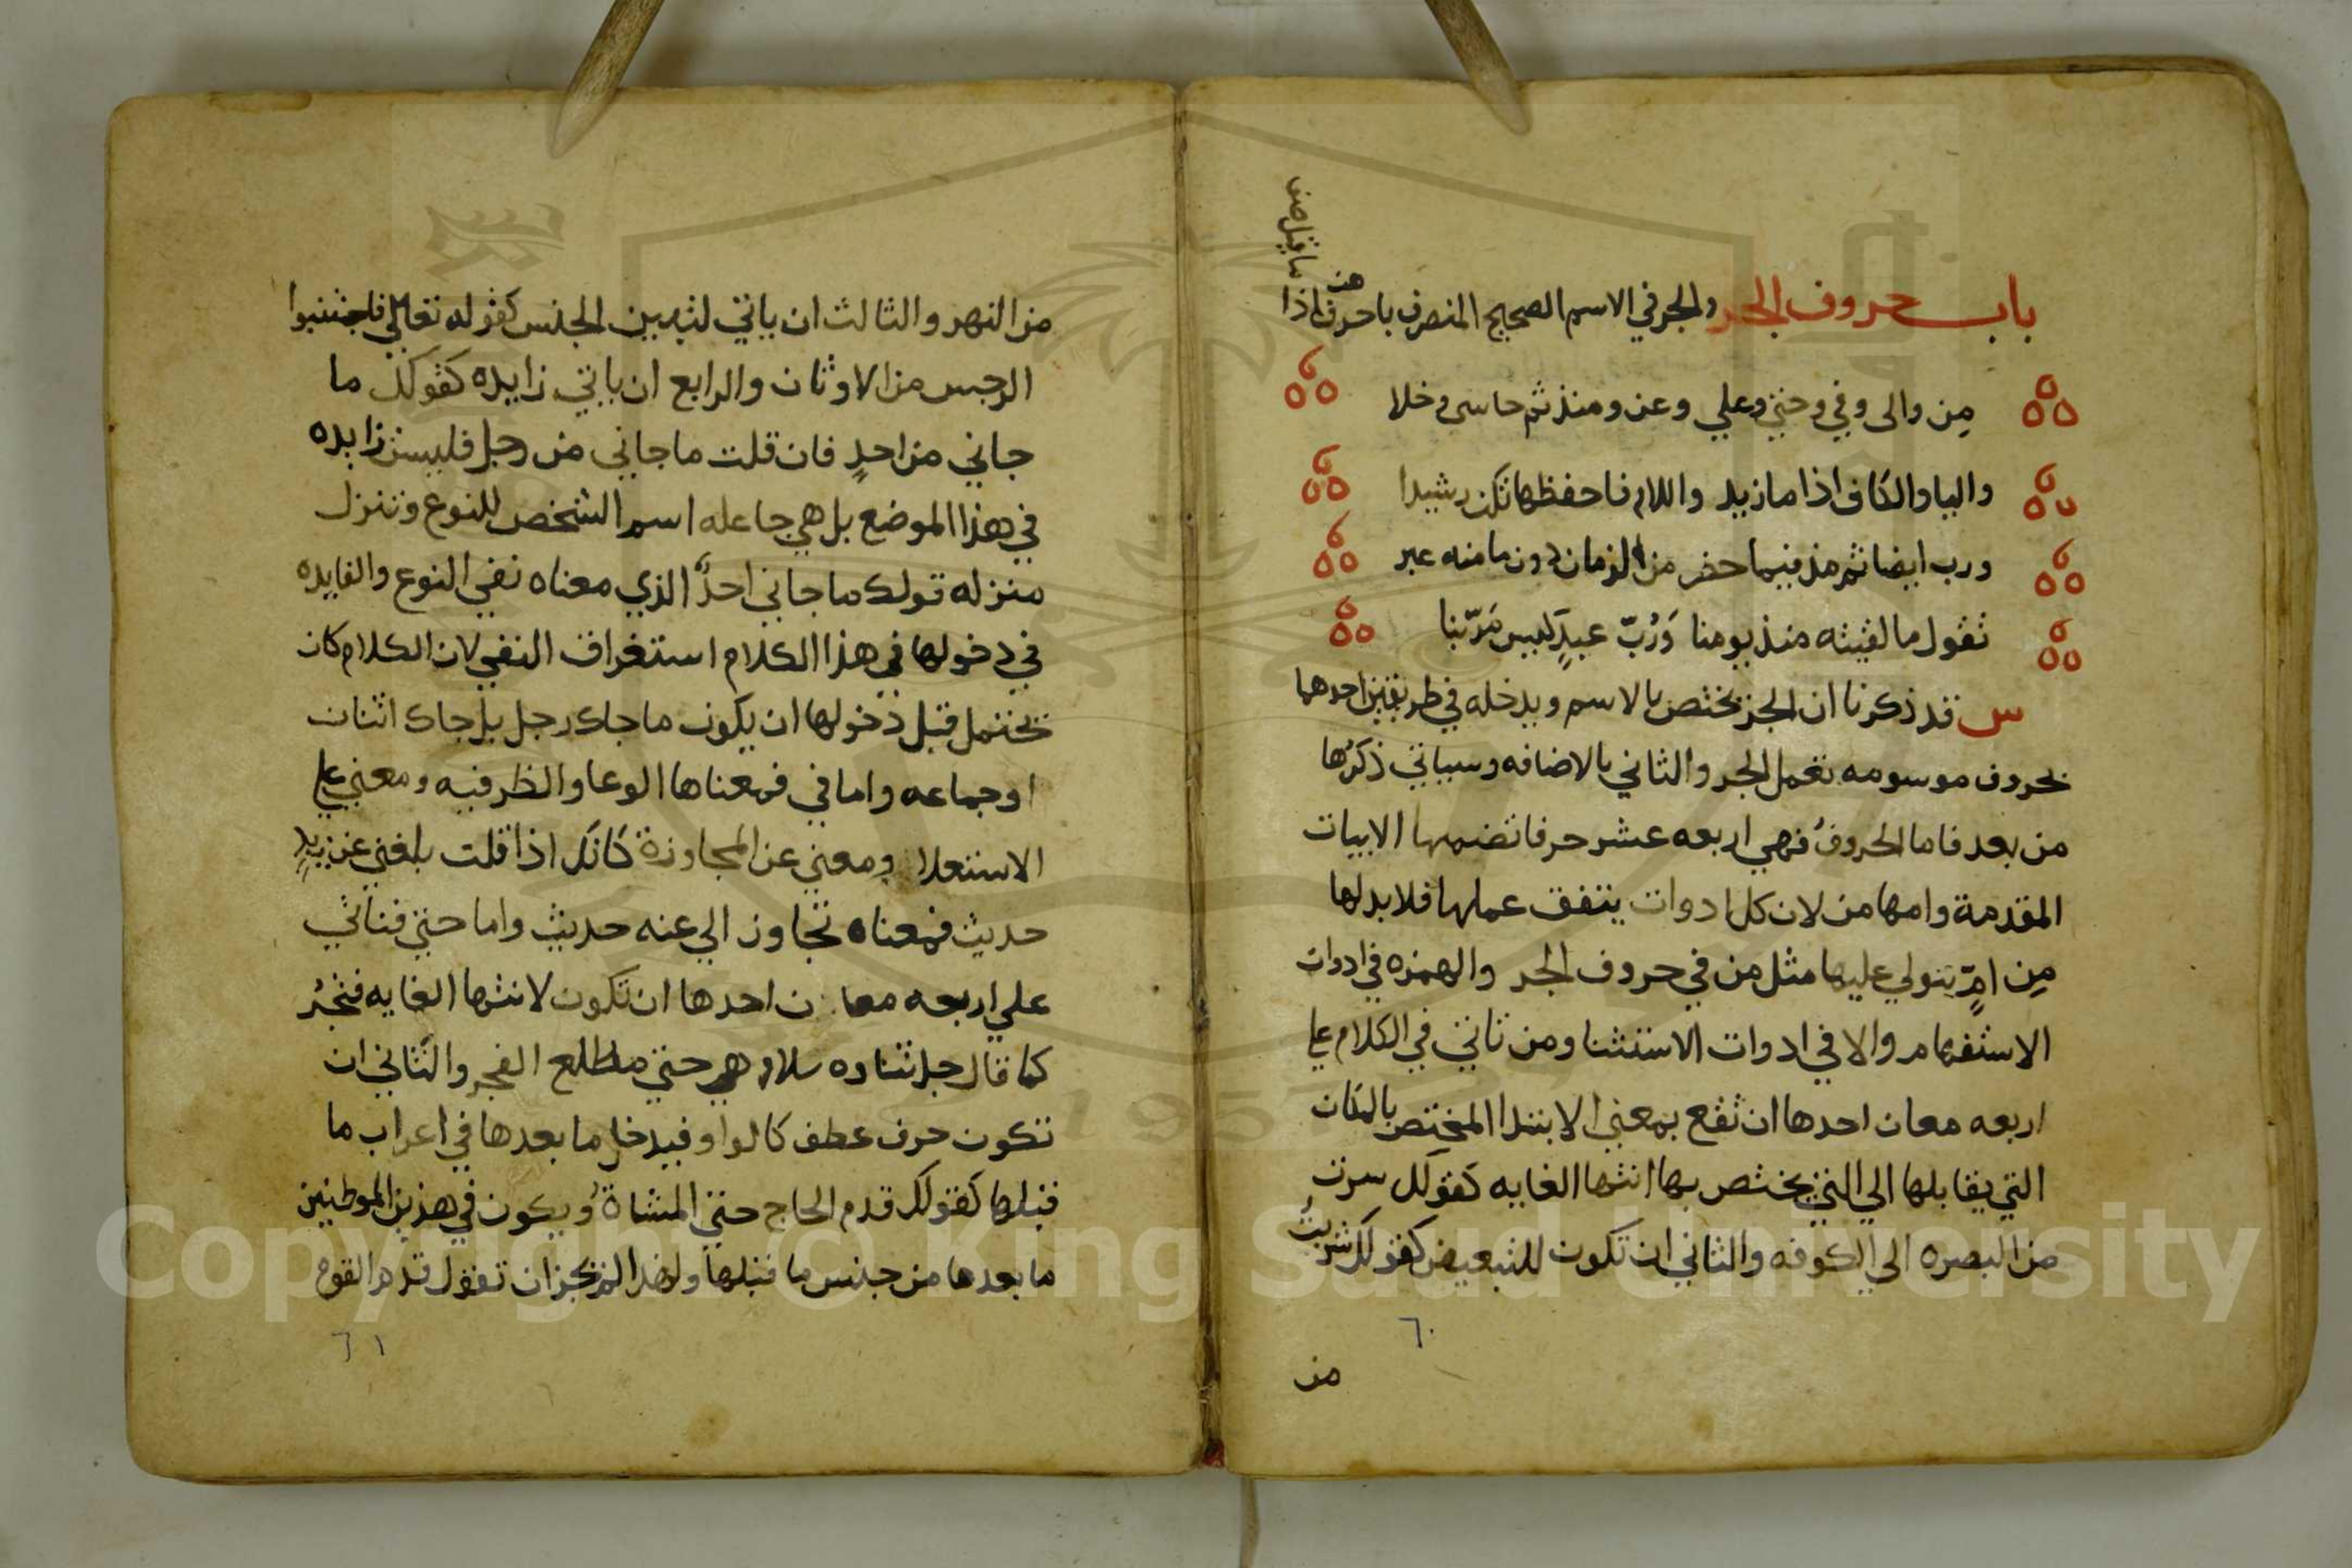 باب حروف الجر والجر في الاسم الصحيح المنصرف باحرف هن اذا
ما قيل صف
من والى وفي وحتي وعلي وعن ومنذ ثم حاشى وخلا
والبا والكاف اذا ما زيدا واللام فاحفظها تكن رشيدا
ورب ايضا ثم مذ فيما حضر من الزمان دون ما منه عبر
تقول ما لقيته منذ يومنا وَرُبّ عبدٍ كيس مَرّ بنا
س قد ذكرنا ان الجر يختص بالاسم ويدخله في طريقين احدهما
بحروف موسومه تعمل الجر والثاني بالاضافه وسياتي ذكرُها
من بعد فاما الحروفُ فهي اربعه عشر حرفا تضمنها الابيات
المقدمة وامها من لان كل ادوات يتفق عملها فلا بد لها
مِن امٍّ تتولي عليها مثل من في حروف الجر والهمزه في ادوات
الاستفهام والا في ادوات الاستثنا ومن تاتي في الكلام علي
اربعه معان احدها ان تقع بمعني الابتدا المختص بالمكان
التي يقابلها الي التي يختص بها انتها الغايه كقولك سرت
من البصره الي الكوفه والثاني ان تكون للتبعيض كقولك شربتُ
٦٠
من
من النهر والثالث ان ياتي لتبيين الجنس كقوله تعالي فاجتنبوا
الرجس من الاوثان والرابع ان ياتي زايده كقولك ما
جاني من احدٍ فان قلت ما جاني من رجل فليس زايده
في هذا الموضع بل هي جاعله اسم الشخص للنوع وتنزل
منزله قولك ما جاني احدٌ الذي معناه نفي النوع والفايده
في دخولها في هذا الكلام استغراق النفي لان الكلام كان
يحتمل قبل دخولها ان يكون ما جاك رجل بل جاك اثنان
او جماعه واما في فمعناها الوعا والظرفيه ومعني علي
الاستعلا ومعني عن المجاوزة كانك اذا قلت بلغني عن زيدٍ
حديث فمعناه تجاوز الي عنه حديث واما حتي فتاتي
علي اربعه معان احدها ان تكون لانتها الغايه فتجُر
كما قال جل ثناوه سلام هي حتي مطلع الفجر والثاني ان
تكون حرف عطف كالواو فيدخل ما بعدها في اعراب ما
قبلها كقولك قدم الحاج حتي المشاةُ ويكون في هذين الموطنين
ما بعدها من جنس ما قبلها ولهذا لم يجز ان تقول قدم القوم
٦١
Copyright © King Saud University
1957